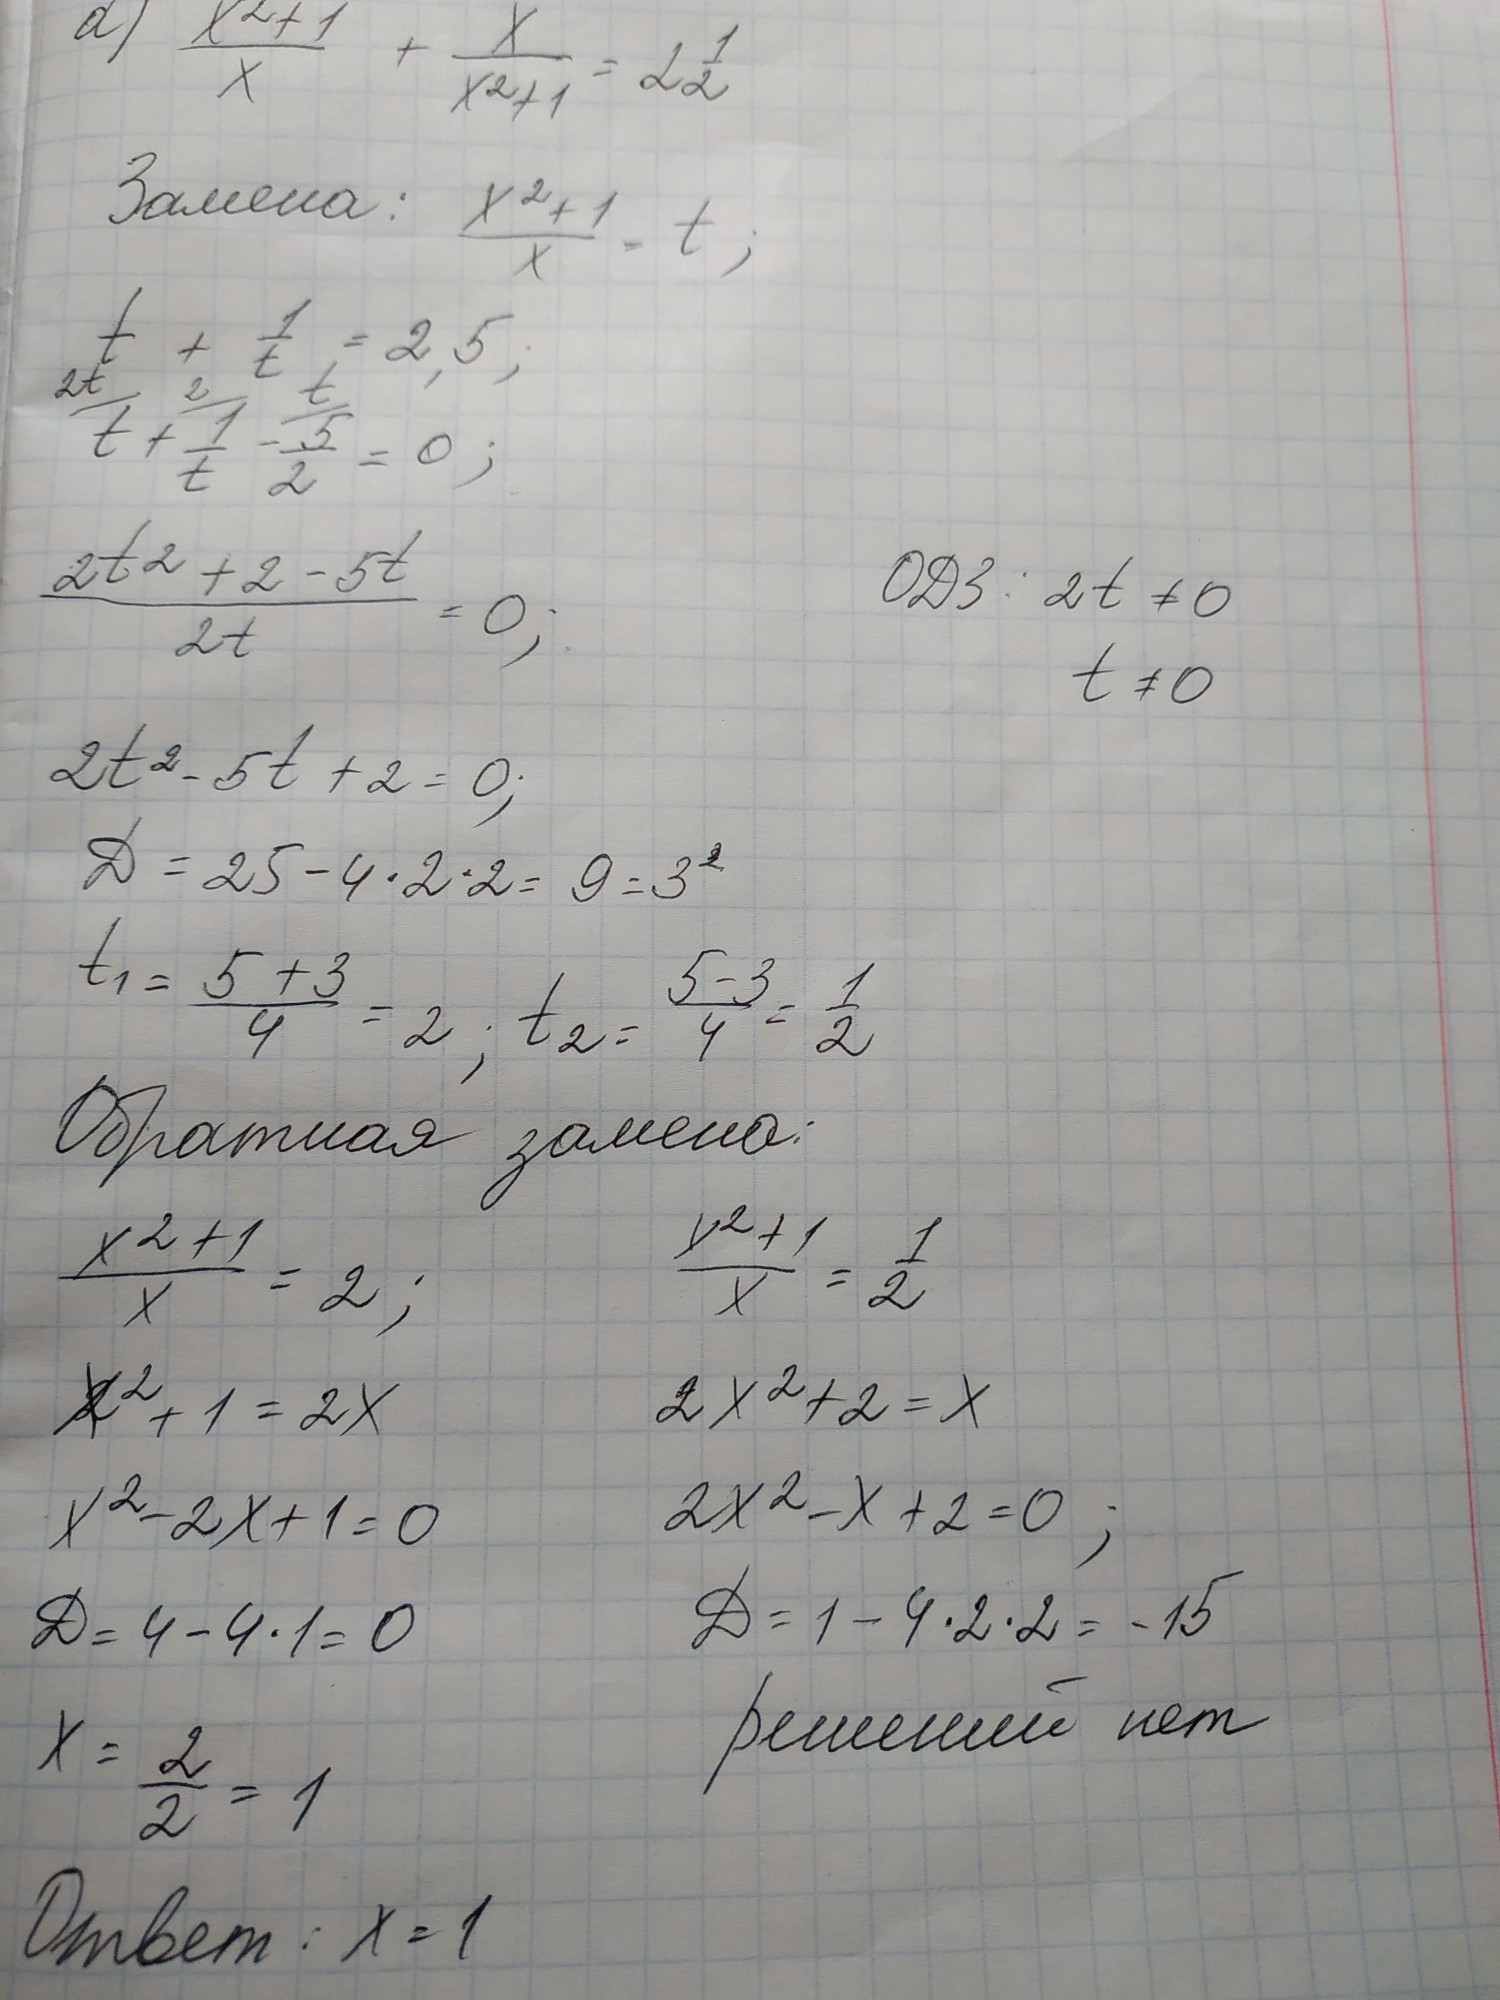 а) (x²+1)/x + x/(x²+1) = 2 1/2
Замена: (x²+1)/x = t;
t + 1/t = 2,5;
2t/ 2/ t/
t + 1/t - 5/2 = 0;
(2t² + 2 - 5t)/2t = 0; ОДЗ: 2t ≠ 0
t ≠ 0
2t² - 5t + 2 = 0;
D = 25 - 4·2·2 = 9 = 3²
t₁ = (5+3)/4 = 2; t₂ = (5-3)/4 = 1/2
Обратная замена:
(x²+1)/x = 2; (x²+1)/x = 1/2
x² + 1 = 2x 2x² + 2 = x
x² - 2x + 1 = 0 2x² - x + 2 = 0;
D = 4 - 4·1 = 0 D = 1 - 4·2·2 = -15
x = 2/2 = 1 решений нет
Ответ: x = 1